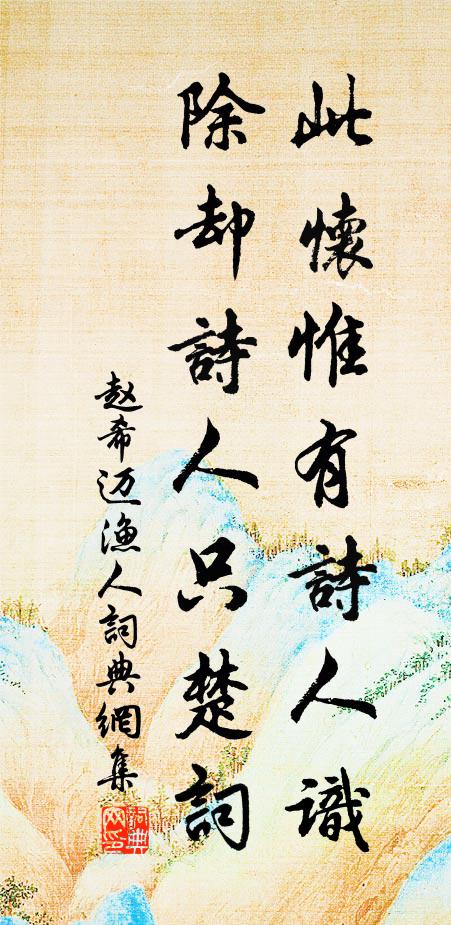 此懷惟有詩人識
除却詩人只楚詞
赵希迈漁人詞典網集
詞典网印